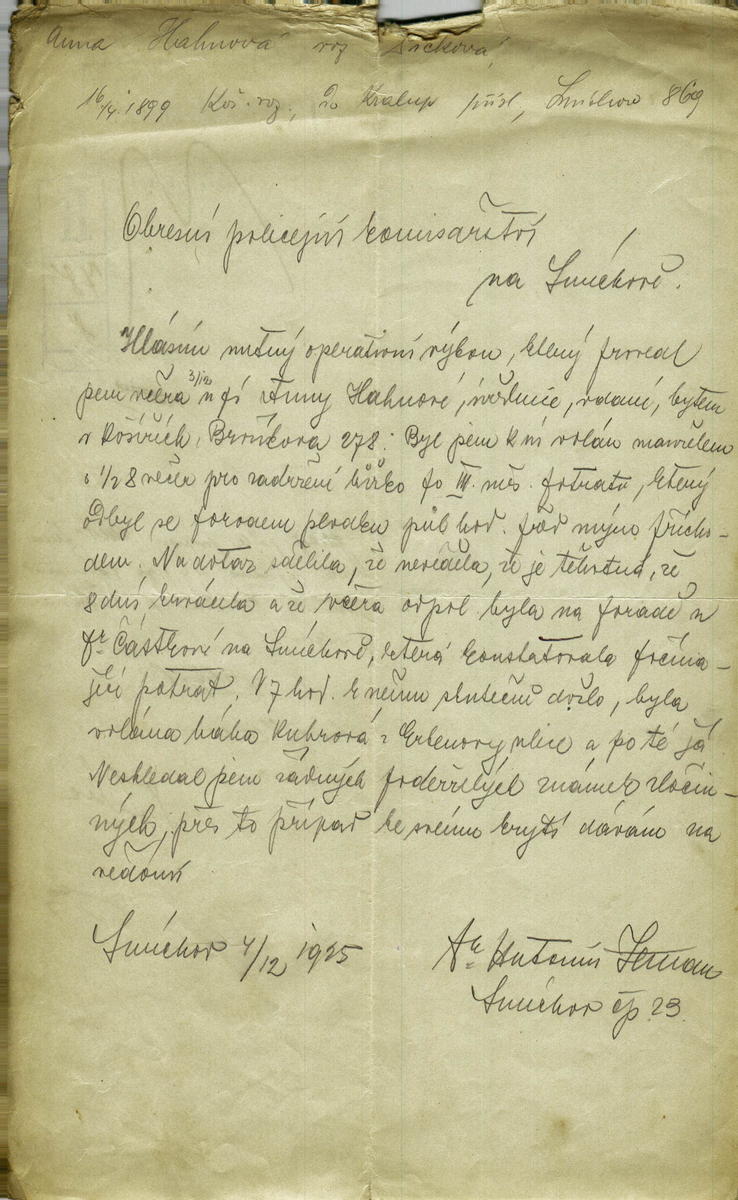 Anna Hahnová roz
16/4. 1899 Koš. roz., do Kralup přísl., Smíchov 869
Okresní policejní komisařství
na Smíchově.
Hlásím nutný operativní výkon, který provedl
jsem včera 3/12 u pí Anny Hahnové, úřednice, vdané, bytem
v Košířích, Brožíkova 278. Byl jsem k ní volán manželem
o 1/2 8 večer pro zadržení lůžka po III. měs. potratu, který
odbyl se porodem plodku půl hod. před mým přícho-
dem. Na dotaz sdělila, že nevěděla, že je těhotná, že
8 dní krvácela a že včera odpol. byla na poradě u
pr Částkové na Smíchově, která konstatovala počína-
jící potrat. V 7 hod. k němu skutečně došlo, byla
volána bába Kuhrová z Erbenovy ulice a po té já
Neshledal jsem žádných podezřelých známek zločin-
ných, přes to případ ke svému krytí dávám na
vědomí
Smíchov 4/12 1925
Dr Antonín
Smíchov čp. 23.